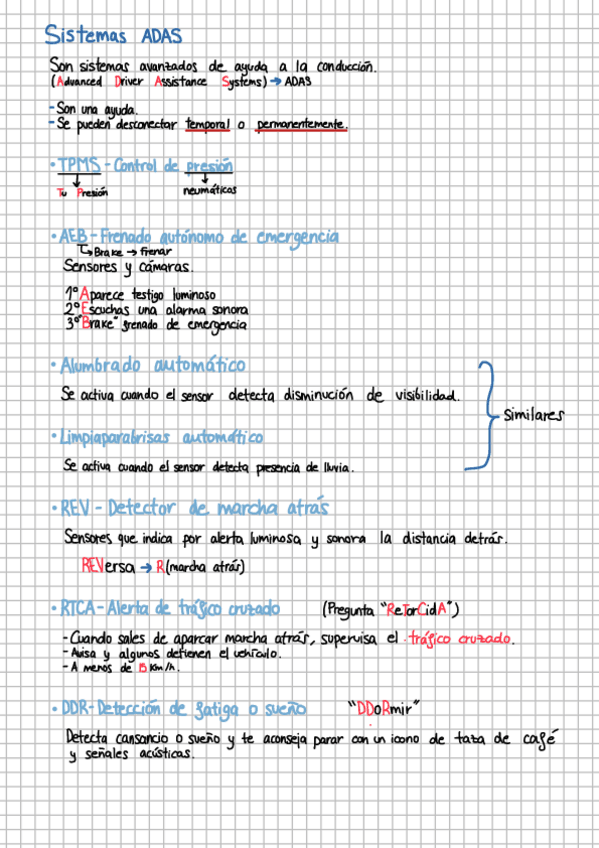 Sistemas ADAS
Son sistemas avanzados de ayuda a la conducción.
(Advanced Driver Assistance Systems) → ADAS
- Son una ayuda.
- Se pueden desconectar temporal o permanentemente.
• TPMS - Control de presión
Tu Presión
neumáticos
• AEB - Frenado autónomo de emergencia
↳ Brake → Frenar
Sensores y cámaras.
1º Aparece testigo luminoso
2º Escuchas una alarma sonora
3º "Brake" frenado de emergencia
• Alumbrado automático
Se activa cuando el sensor detecta disminución de visibilidad.
Similares
• Limpiaparabrisas automático
Se activa cuando el sensor detecta presencia de lluvia.
• REV - Detector de marcha atrás
Sensores que indica por alerta luminosa y sonora la distancia detrás.
REVersa → R (marcha atrás)
• RTCA - Alerta de tráfico cruzado (Pregunta "ReTorCidA")
- Cuando sales de aparcar marcha atrás, supervisa el tráfico cruzado.
- Avisa y algunos detienen el vehículo.
- A menos de Km/h.
• DDR - Detección de fatiga o sueño "DDoRmir"
Detecta cansancio o sueño y te aconseja parar con un icono de taza de café
y señales acústicas.